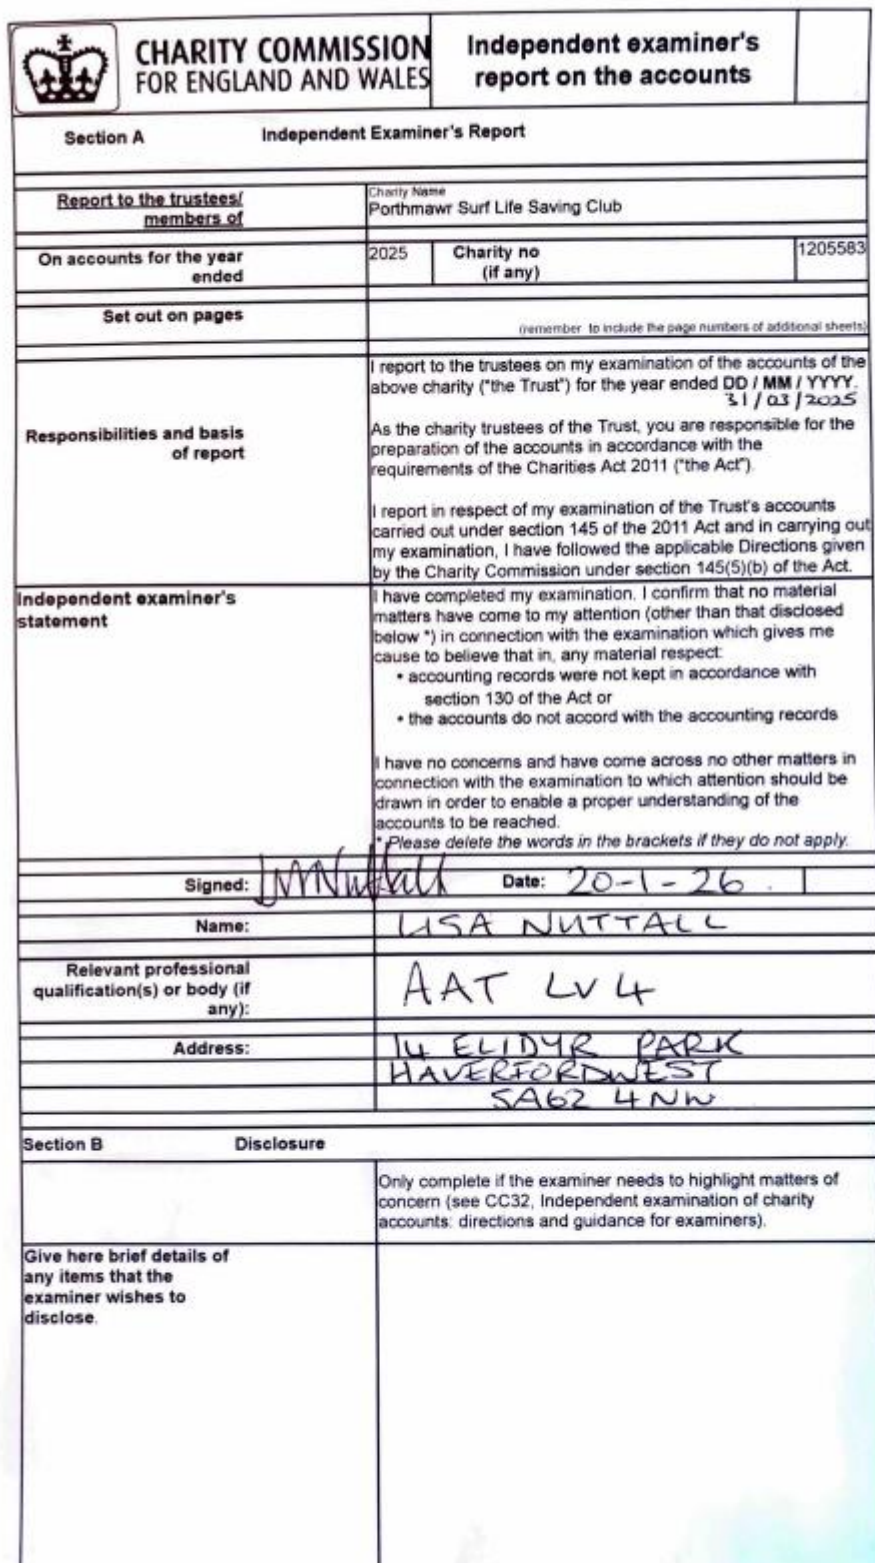 CHARITY COMMISSION
FOR ENGLAND AND WALES
Independent examiner's
report on the accounts
Section A Independent Examiner's Report
Report to the trustees/
members of
Charity Name
Porthmawr Surf Life Saving Club
On accounts for the year
ended
2025
Charity no
(if any)
1205583
Set out on pages
(remember to include the page numbers of additional sheets)
Responsibilities and basis
of report
I report to the trustees on my examination of the accounts of the
above charity ("the Trust") for the year ended DD / MM / YYYY.
31/03/2025
As the charity trustees of the Trust, you are responsible for the
preparation of the accounts in accordance with the
requirements of the Charities Act 2011 ("the Act").
I report in respect of my examination of the Trust's accounts
carried out under section 145 of the 2011 Act and in carrying out
my examination, I have followed the applicable Directions given
by the Charity Commission under section 145(5)(b) of the Act.
Independent examiner's
statement
I have completed my examination. I confirm that no material
matters have come to my attention (other than that disclosed
below *) in connection with the examination which gives me
cause to believe that in, any material respect:
• accounting records were not kept in accordance with
section 130 of the Act or
• the accounts do not accord with the accounting records
I have no concerns and have come across no other matters in
connection with the examination to which attention should be
drawn in order to enable a proper understanding of the
accounts to be reached.
* Please delete the words in the brackets if they do not apply.
Signed: LMNuttall Date: 20-1-26.
Name: LISA NUTTALL
Relevant professional
qualification(s) or body (if
any):
AAT LV 4
Address: 14 ELIDYR PARK
HAVERFORDWEST
SA62 4NW
Section B Disclosure
Only complete if the examiner needs to highlight matters of
concern (see CC32, Independent examination of charity
accounts: directions and guidance for examiners).
Give here brief details of
any items that the
examiner wishes to
disclose.